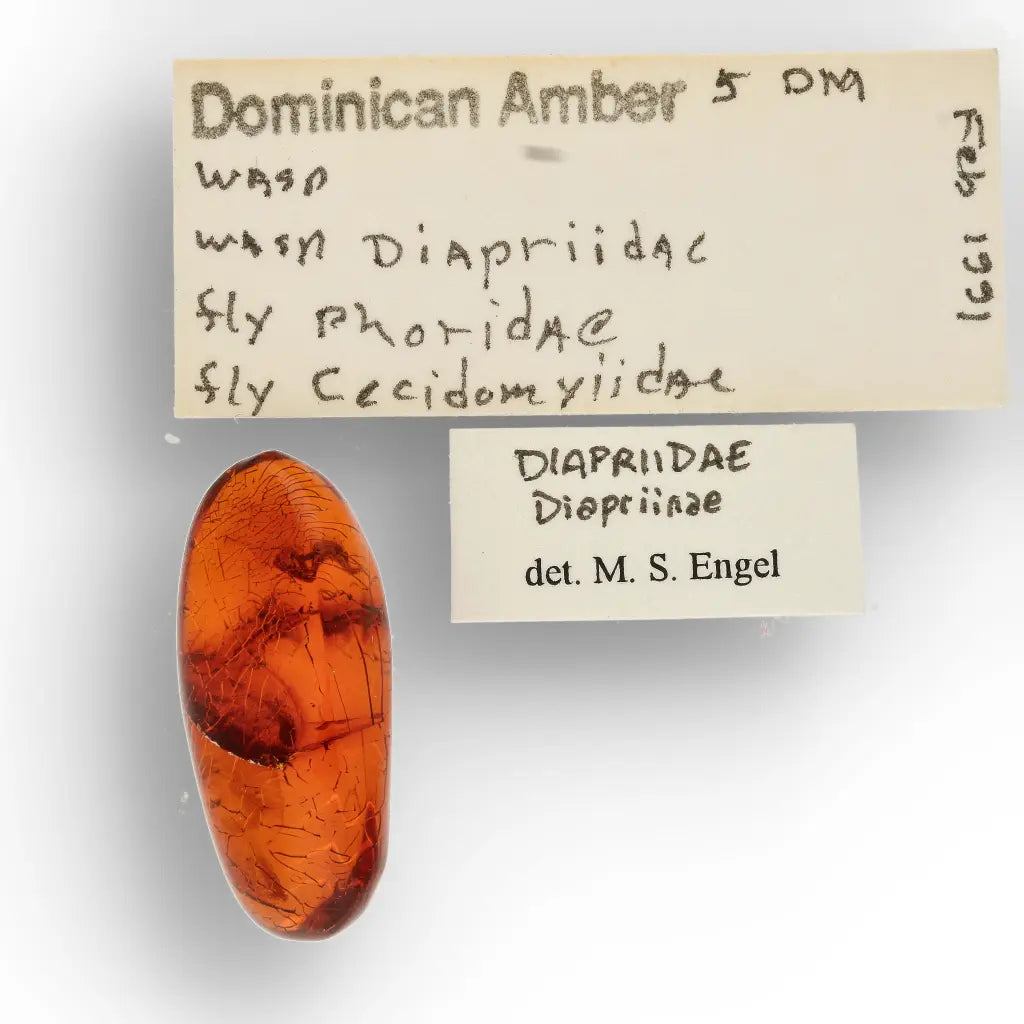 Dominican Amber 5 DM
wasp
wasp Diapriidae
fly Phoridae
fly Cecidomyiidae
Feb 1991
DIAPRIIDAE
Diapriinae
det. M. S. Engel